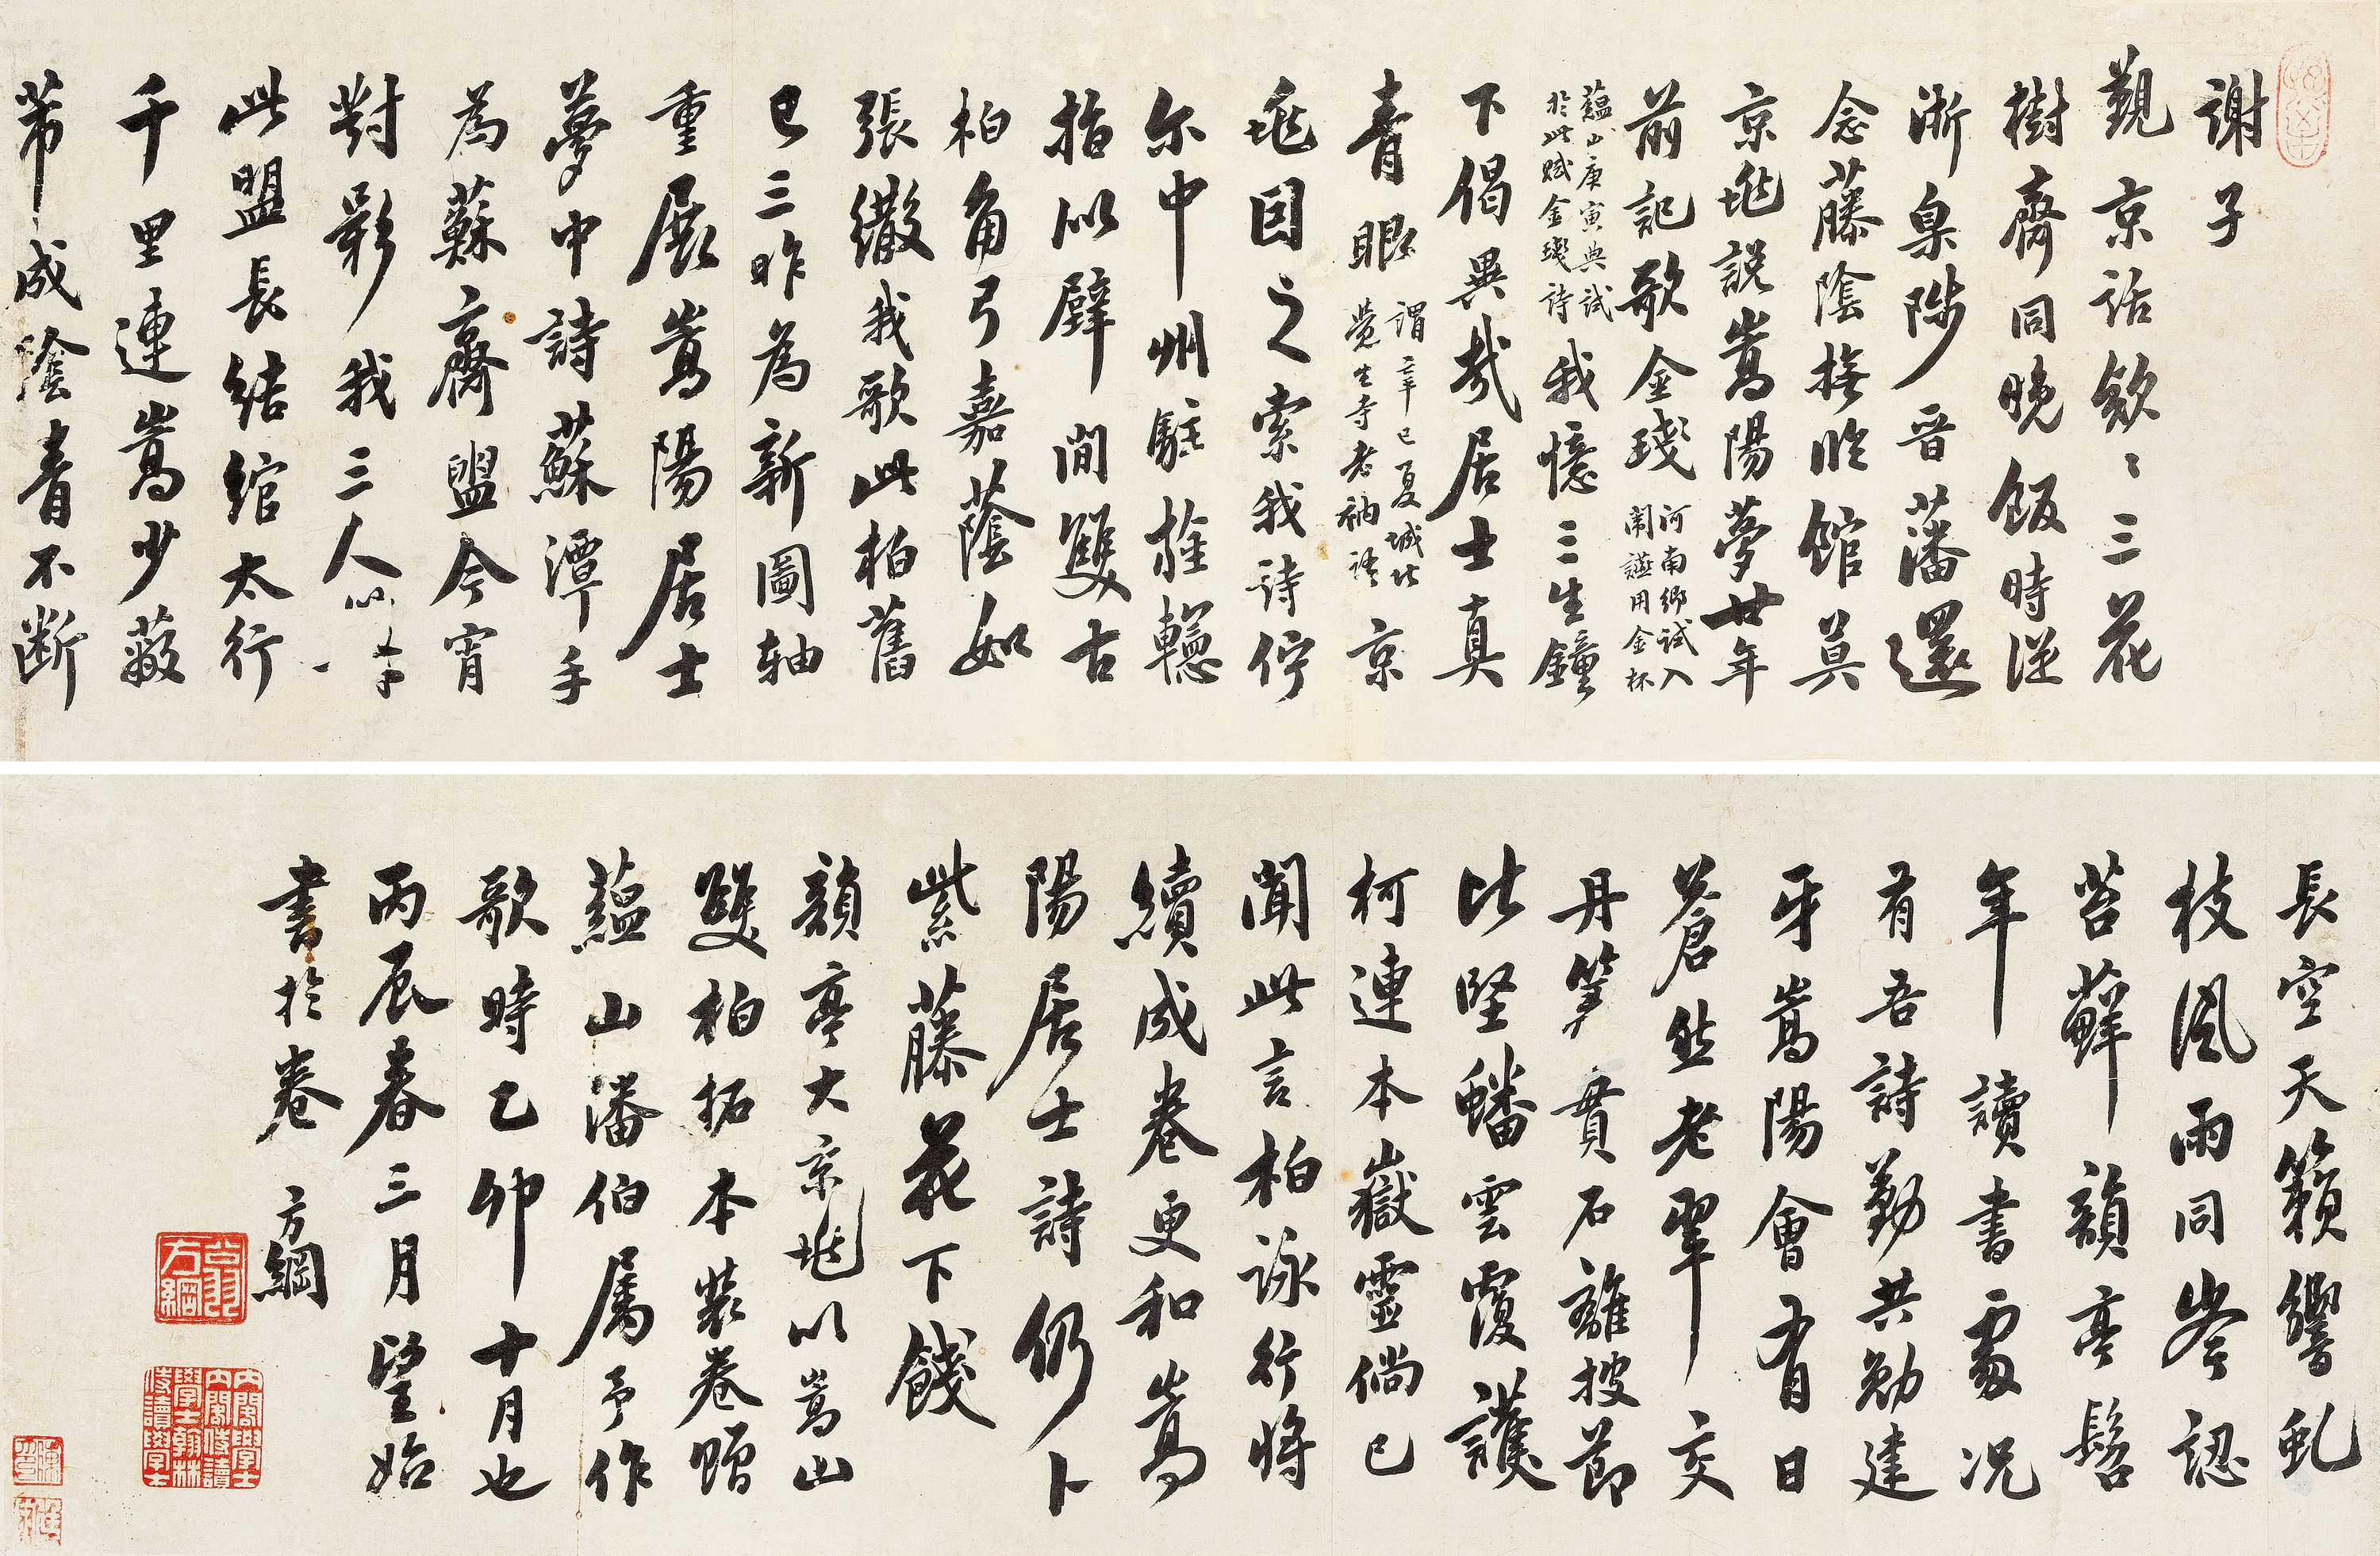 謝子
觐京話款款三花
樹齋同晚飯時從
浙臬陟晋藩還
念藤陰接眎館莫
京兆說嵩陽夢廿年
前記歌金琖 河南鄉試入闈讌用金杯
蘊山庚寅典試於此賦金琖詩 我憶三生鐘
下偈異哉居士真
青眼 謂辛巳夏城北覺生寺老衲語 京
兆因之索我詩佇
尔中州駐旌轓
指似壁間雙古
柏角弓嘉蔭如
張繖我歌此柏舊
已三昨為新圖軸
重展嵩陽居士
夢中詩蘇潭手
為蘇齋盟今宵
對影我三人
此盟長結綰太行
千里連嵩少蔽
芾成陰青不斷
長空天籟響虬
枝風雨同岑認
苔蘚韻亭髫
年讀書處况
有吾詩勤共勉建
牙嵩陽會有日
蒼然老翠交
丹筆貫石離披節
比堅蟠雲覆護
柯連本嶽靈倘已
聞此言柏詠行將
續成卷更和嵩
陽居士詩仍卜
紫藤花下餞
韻亭大京兆以嵩山
雙柏拓本裝卷贈
蘊山潘伯屬予作
歌時乙卯十月也
丙辰春三月望始
書於卷 方綱
翁方綱
內閣學士內閣侍讀學士翰林侍讀學士